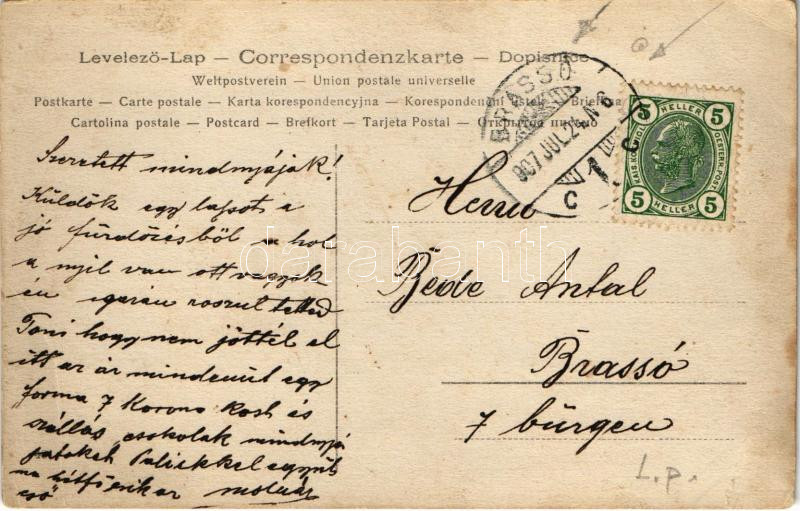 Levelező-Lap — Correspondenzkarte — Dopisnice
Weltpostverein — Union postale universelle
Postkarte — Carte postale — Karta korespondencyjna — Korespondenční lístek — Briefkaa
Cartolina postale — Postcard — Brefkort — Tarjeta Postal — Открытое письмо
BRASSÓ
907 JUL. 24. N 6
C 1 C
5 HELLER 5
KAIS. KÖNIGL. OESTERR. POST.
5 HELLER 5
Szeretett mindnyájak!
Küldök egy lapot a
jó fürdőzésből a hol
a nyil van ott vagyok
én igazán roszul tetted
Toni hogy nem jöttél el
itt az ár mindenüt egy
forma 7 Korona kosh és
szállás csokolak mindnyá
jatokat együt
eső
Herrn
Bede Antal
Brassó
7 bürgen
L.p.
darabanth